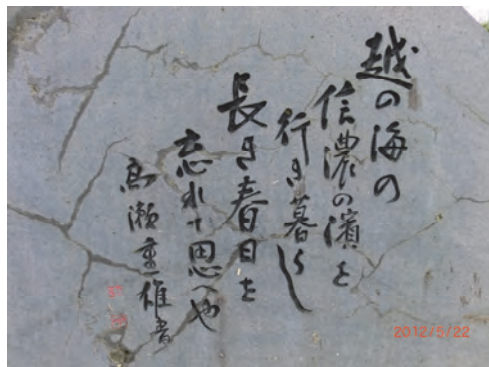 越の海の
信濃の濱を
行き暮らし
長き春日を
忘れて思へや
高瀬重雄書
2012/5/22